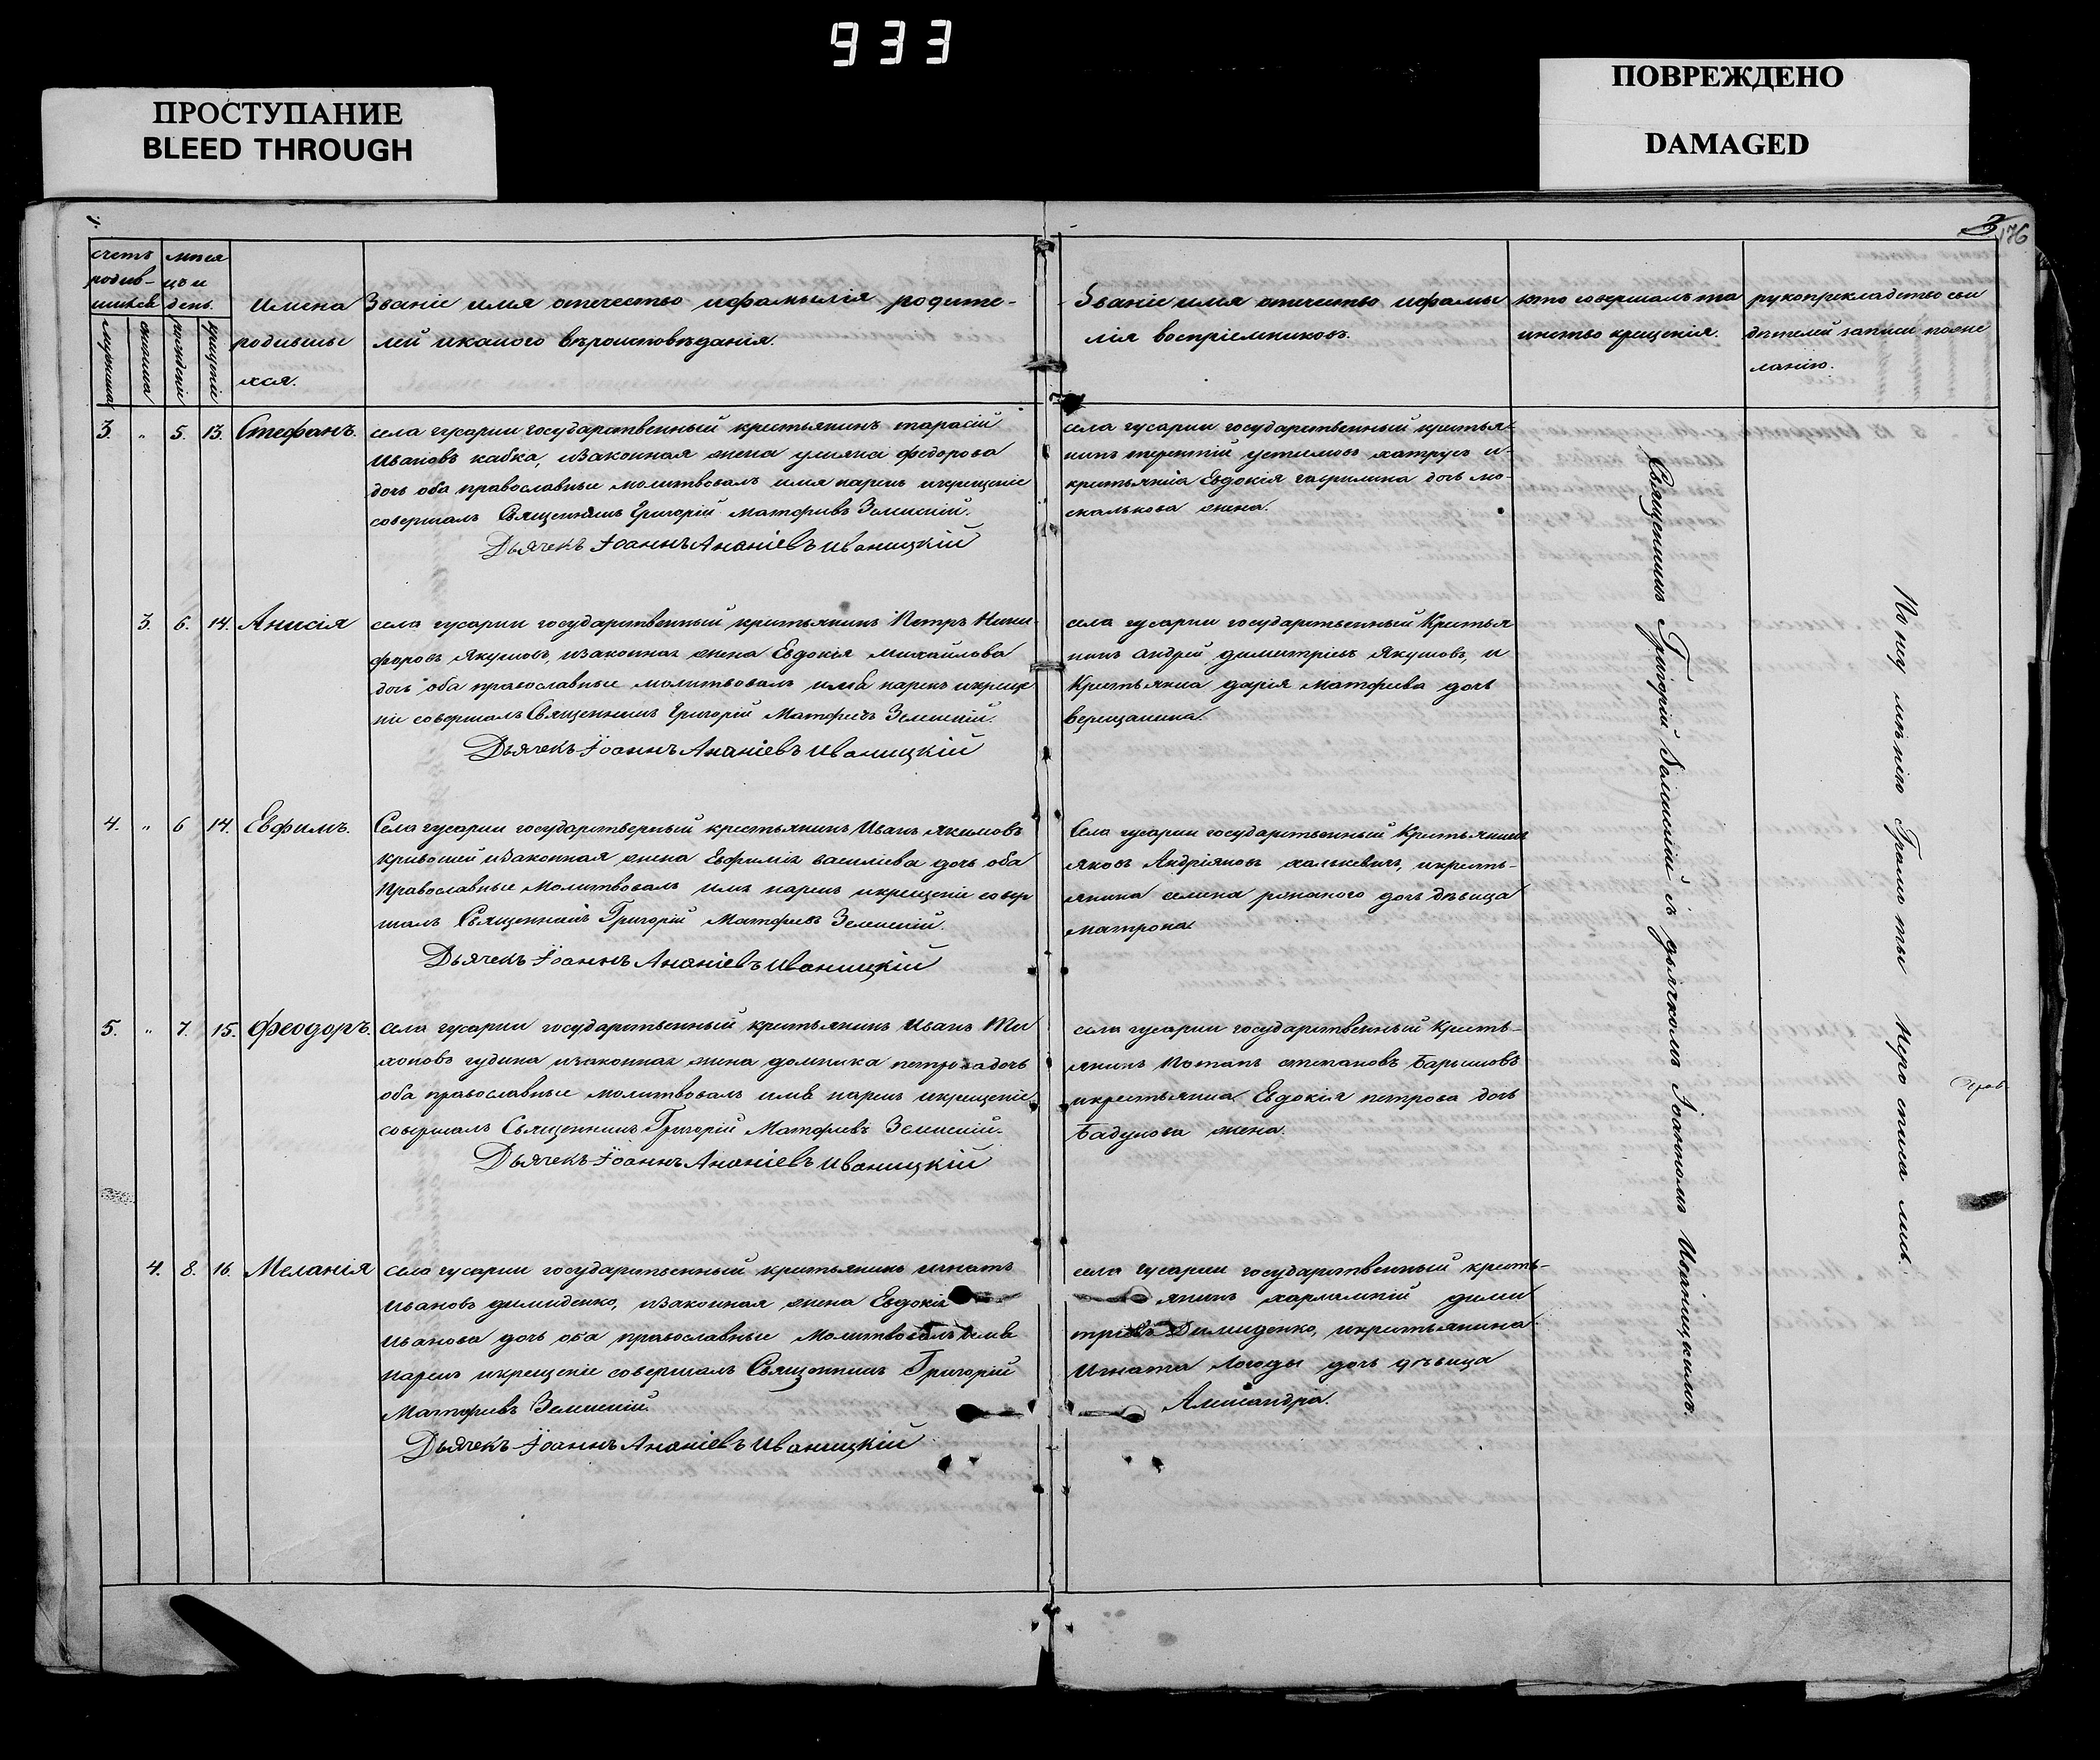 933
ПРОСТУПАНИЕ
BLEED THROUGH
ПОВРЕЖДЕНО
DAMAGED
3
176
счетъ
родив-
шихся
меся
цъ и
день.
рожденіе
крещеніе
Имена
родивши
хся.
Званіе имя отечество ифамилія родите-
лей икакого въроисповъданія.
Званіе имя отечество ифами
лія воспріемниковъ.
кто совершалъ та
инство крещенія.
рукоприкладство сви
дътелей записи пожe
ланію.
3. „ 5. 13. Стефанъ.
села гусарки государственный крестьянинъ тарасій
Ивановъ кабка, изаконная жена уліяна федорова
дочь оба православные молитвовалъ имя нарекъ икрещеніе
совершалъ Священникъ Григорій Матфіевъ
Дьячекъ Іоаннъ Ананіевъ Иваницкій
села гусарки государственный крестья-
нинъ терентій устимовъ и
крестьянка Евдокія гаврилина дочь мо-
скалькова жена.
3. 6. 14. Анисія
села гусарки государственный крестьянинъ Петръ Ники-
форовъ Якушовъ, изаконная жена Евдокія михайлова
дочь оба православные молитвовалъ имя нарекъ икреще
ніе совершалъ Священникъ Григорій Матфіевъ
Дьячекъ Іоаннъ Ананіевъ Иваницкій
села гусарки государственный Крестья
нинъ андрей димитріевъ Якушовъ, и
Крестьянка дарія матфіева дочь
верещакина.
4. „ 6 14. Евфимъ.
Села гусарки государственный крестьянинъ Иванъ якимовъ
кривошей изаконная жена Евфимія василіева дочь оба
Православные Молитвовалъ имя нарекъ икрещеніе совер
шалъ Священникъ Григорій Матфіевъ
Дьячекъ Іоаннъ Ананіевъ Иваницкій
Села гусарки государственный Крестьянинъ
яковъ Андріяновъ икресть-
янина дочь дъвица
матрона
5. „ 7. 15. Феодоръ.
села гусарки государственный крестьянинъ Иванъ Ти
хоновъ гудина изаконная жена домникa петрова дочь
оба православные молитвовалъ имя нарекъ икрещеніе
совершалъ Священникъ Григорій Матфіевъ
Дьячекъ Іоаннъ Ананіевъ Иваницкій
села гусарки государственный Кресть-
янинъ Потапъ степановъ Барышовъ
икрестьянка Евдокія петрова дочь
Бадулова жена.
4. 8. 16. Меланія
село гусарки государственный крестьянинъ игнатъ
Ивановъ димиденко, изаконная жена Евдокія
Иванова дочь оба православные Молитвовалъ имя
нарекъ икрещеніе совершалъ Священникъ Григорій
Матфіевъ
Дьячекъ Іоаннъ Ананіевъ Иваницкій
села гусарки государственный кресть-
янинъ харлампій дими
тріевъ Димиденко, икрестьянина
Игната Логоды дочь дъвица
Александра.
Священникъ Григорій съ дьячкомъ Іоанномъ Иваницкимъ.
По неу мънію Грамоты